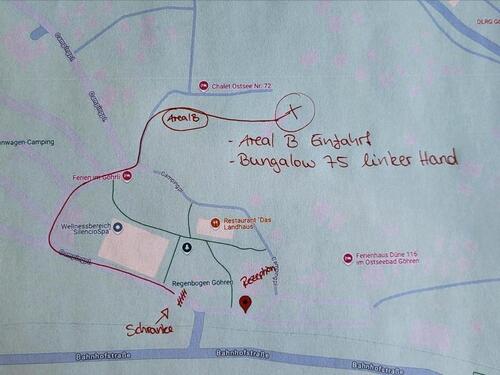 DLRG Gö
Campingpl.
Campingpl.
Chalet Ostsee Nr. 72
Areal B
X
- Areal B Einfahrt
- Bungalow 75 linker Hand
nwagen-Camping
Ferien im Göhrli
Campingpl.
Restaurant "Das
Landhaus"
Wellnessbereich
SilencioSpa
Campingpl.
Ferienhaus Düne 116
im Ostseebad Göhren
Campingpl.
Rezeption
Regenbogen Göhren
Schranke
Bahnhofstraße
Bahnhofstraße
Bahnhofstraße